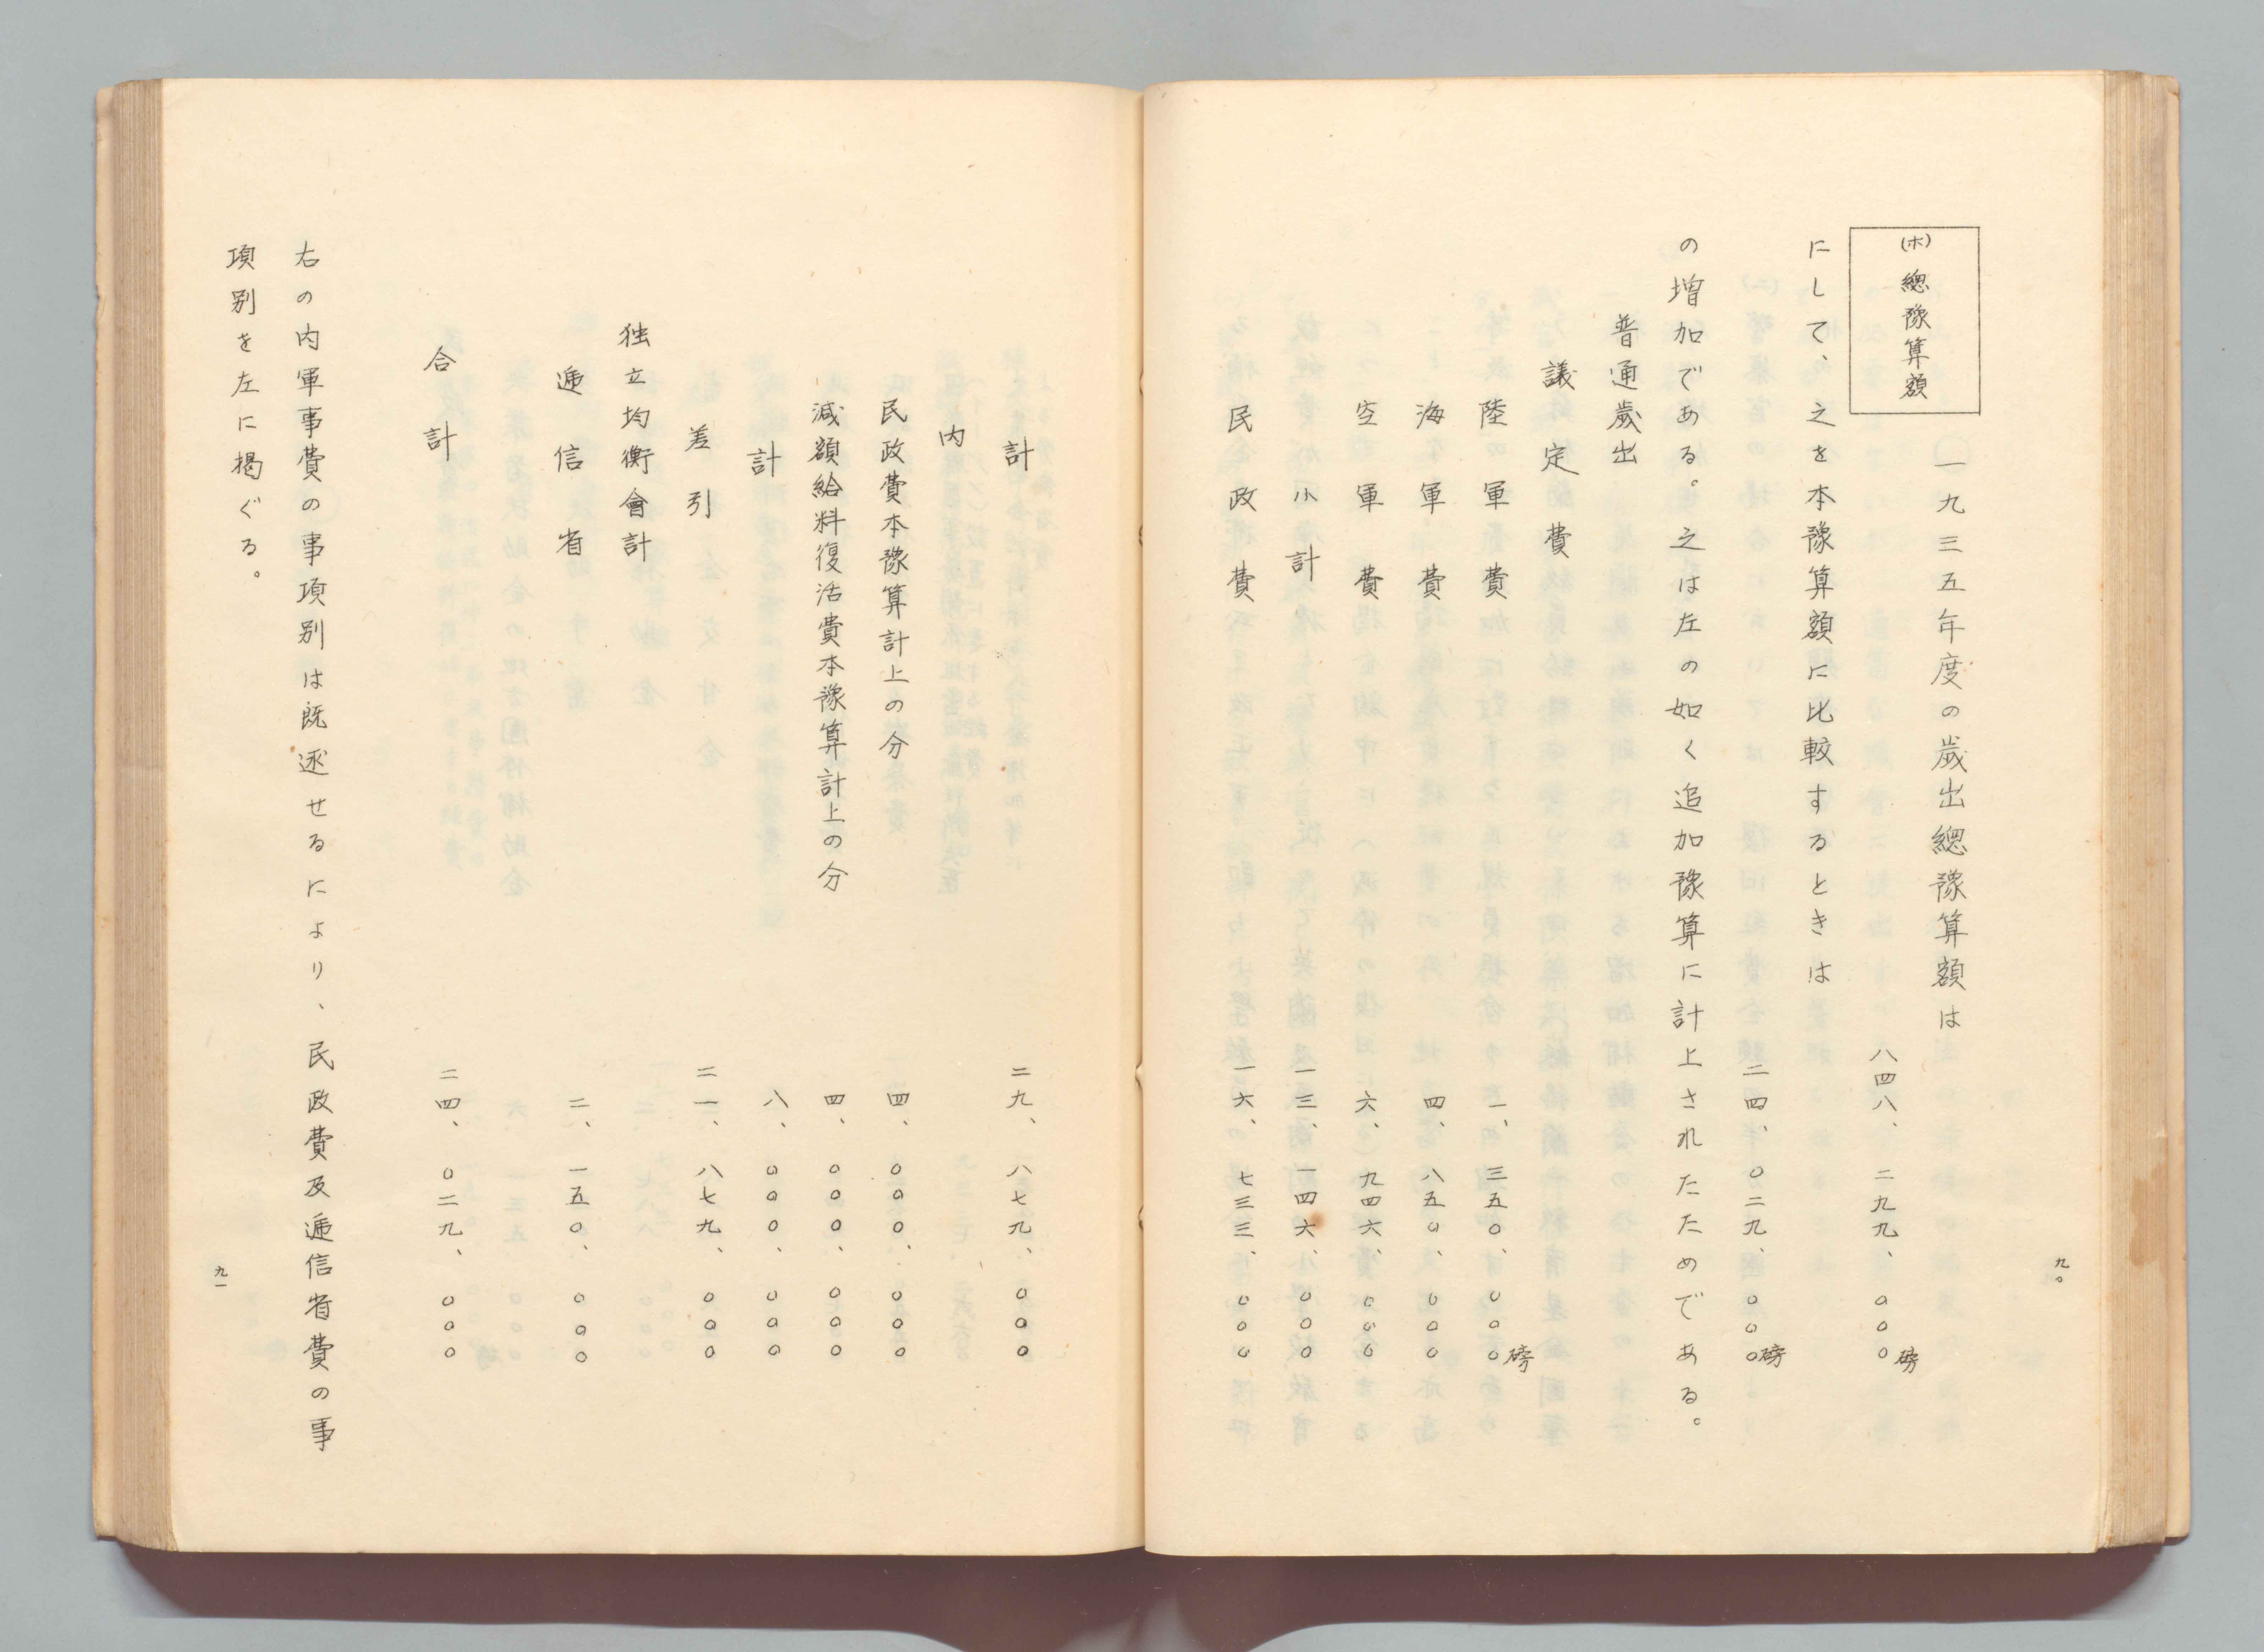 九〇
(ホ) 總豫算額
一九三五年度の歳出總豫算額は
八四八、二九九、〇〇〇磅
にして、之を本豫算額に比較するときは
二四、〇二九、〇〇〇磅
の増加である。之は左の如く追加豫算に計上されたためである。
普通歳出
議定費
陸軍費 一、三五〇、〇〇〇磅
海軍費 四、八五〇、〇〇〇
空軍費 六、九四六、〇〇〇
小計 一三、一四六、〇〇〇
民政費 一六、七三三、〇〇〇
計 二九、八七九、〇〇〇
内
民政費本豫算計上の分 四、〇〇〇、〇〇〇
減額給料復活費本豫算計上の分 四、〇〇〇、〇〇〇
計 八、〇〇〇、〇〇〇
差引 二一、八七九、〇〇〇
独立均衡會計
逓信省 二、一五〇、〇〇〇
合計 二四、〇二九、〇〇〇
右の内軍事費の事項別は既述せるにより、民政費及逓信省費の事
項別を左に掲ぐる。
九一